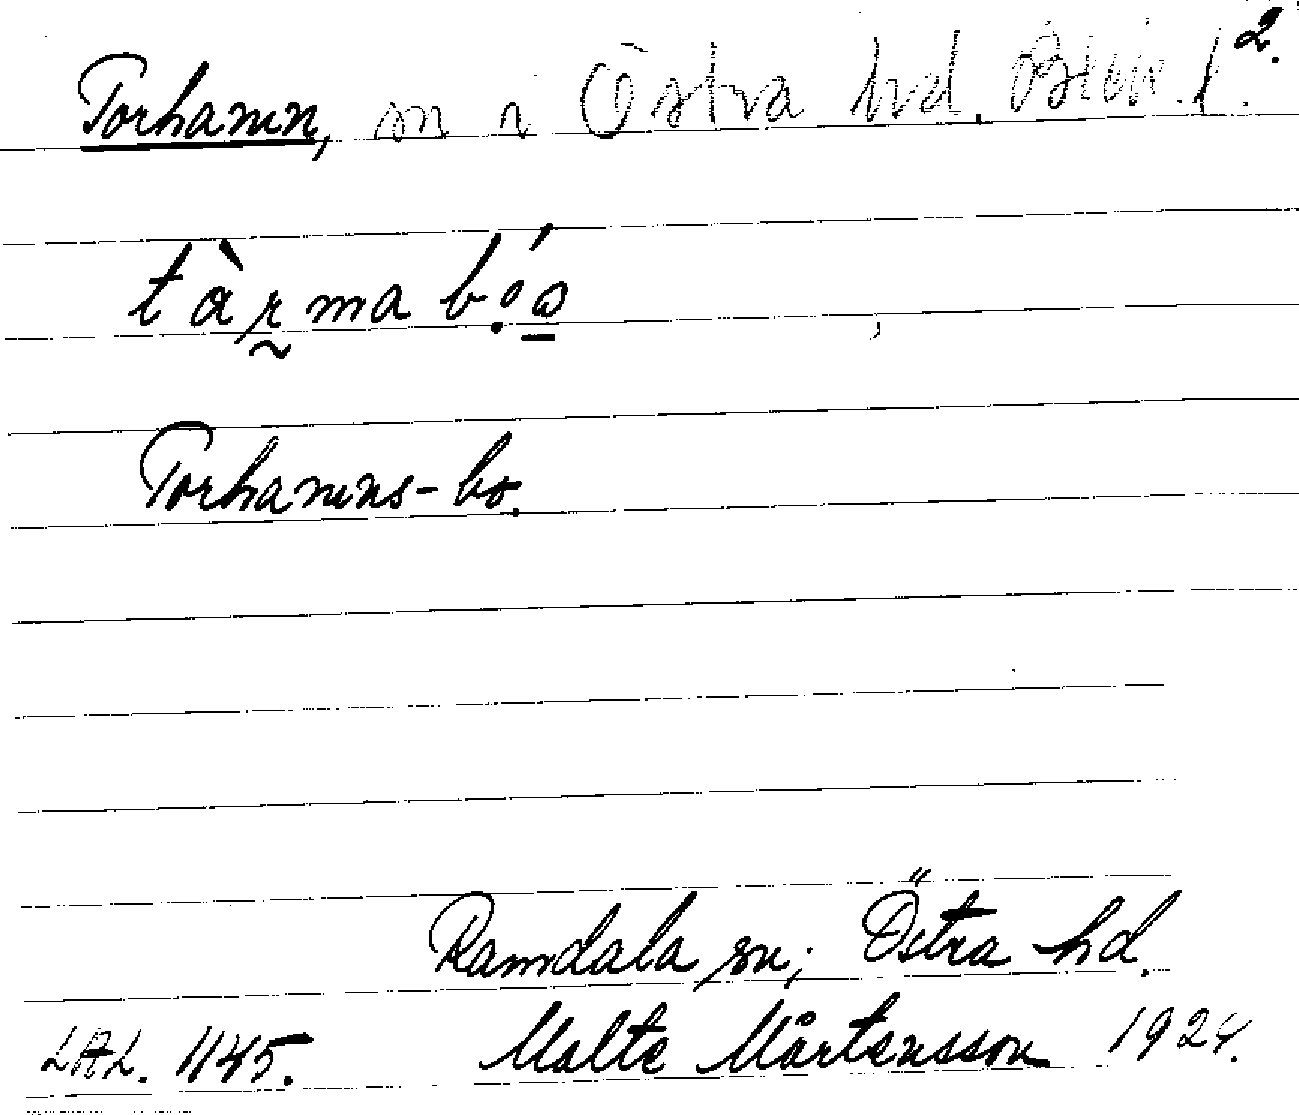 Torhamn, sn i Östra hd. Blek. l. 2.
Torhamns-bo.
Ramdala sn; Östra hd.
LAL. 1145. Malte Mårtensson 1924.